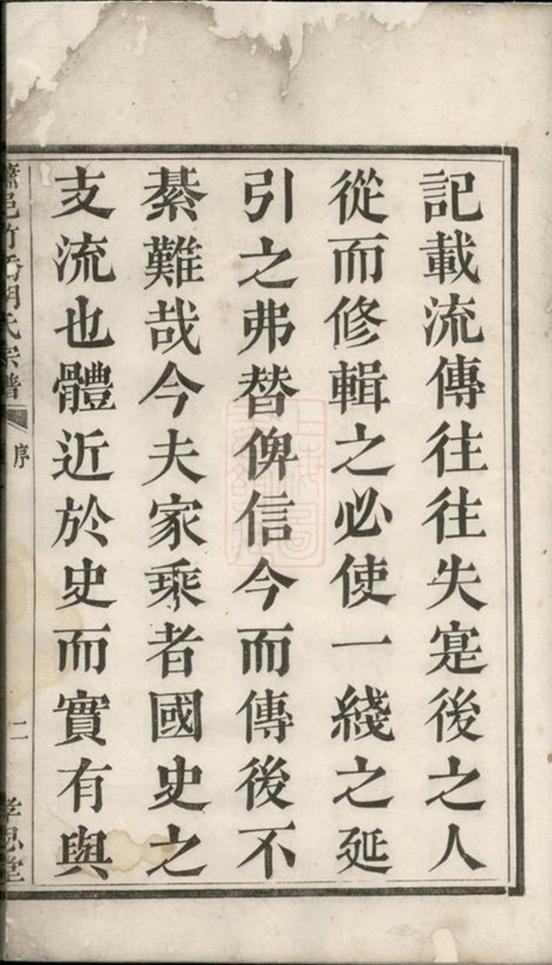 記載流傳往往失寔後之人
從而修輯之必使一綫之延
引之弗替俾信今而傳後不
綦難哉今夫家乘者國史之
支流也體近於史而實有與
蕭邑竹橋胡氏宗譜
序
二
孝思堂